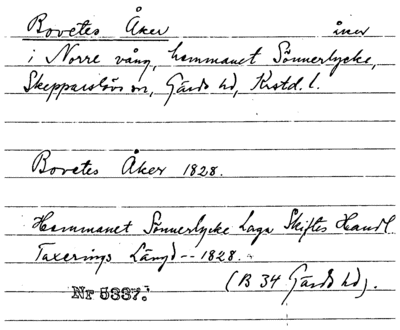 Bovetes Åker åker
i Norre vång, hemmanet Sönnerlycke,
Skepparslövs sn, Gärds hd, Krstd. l.
Bovetes Åker 1828.
Hemmanet Sönnerlycke Laga Skiftes Handl.
Taxerings Längd -- 1828.
(B 34 Gärds hd).
Nr 5337.